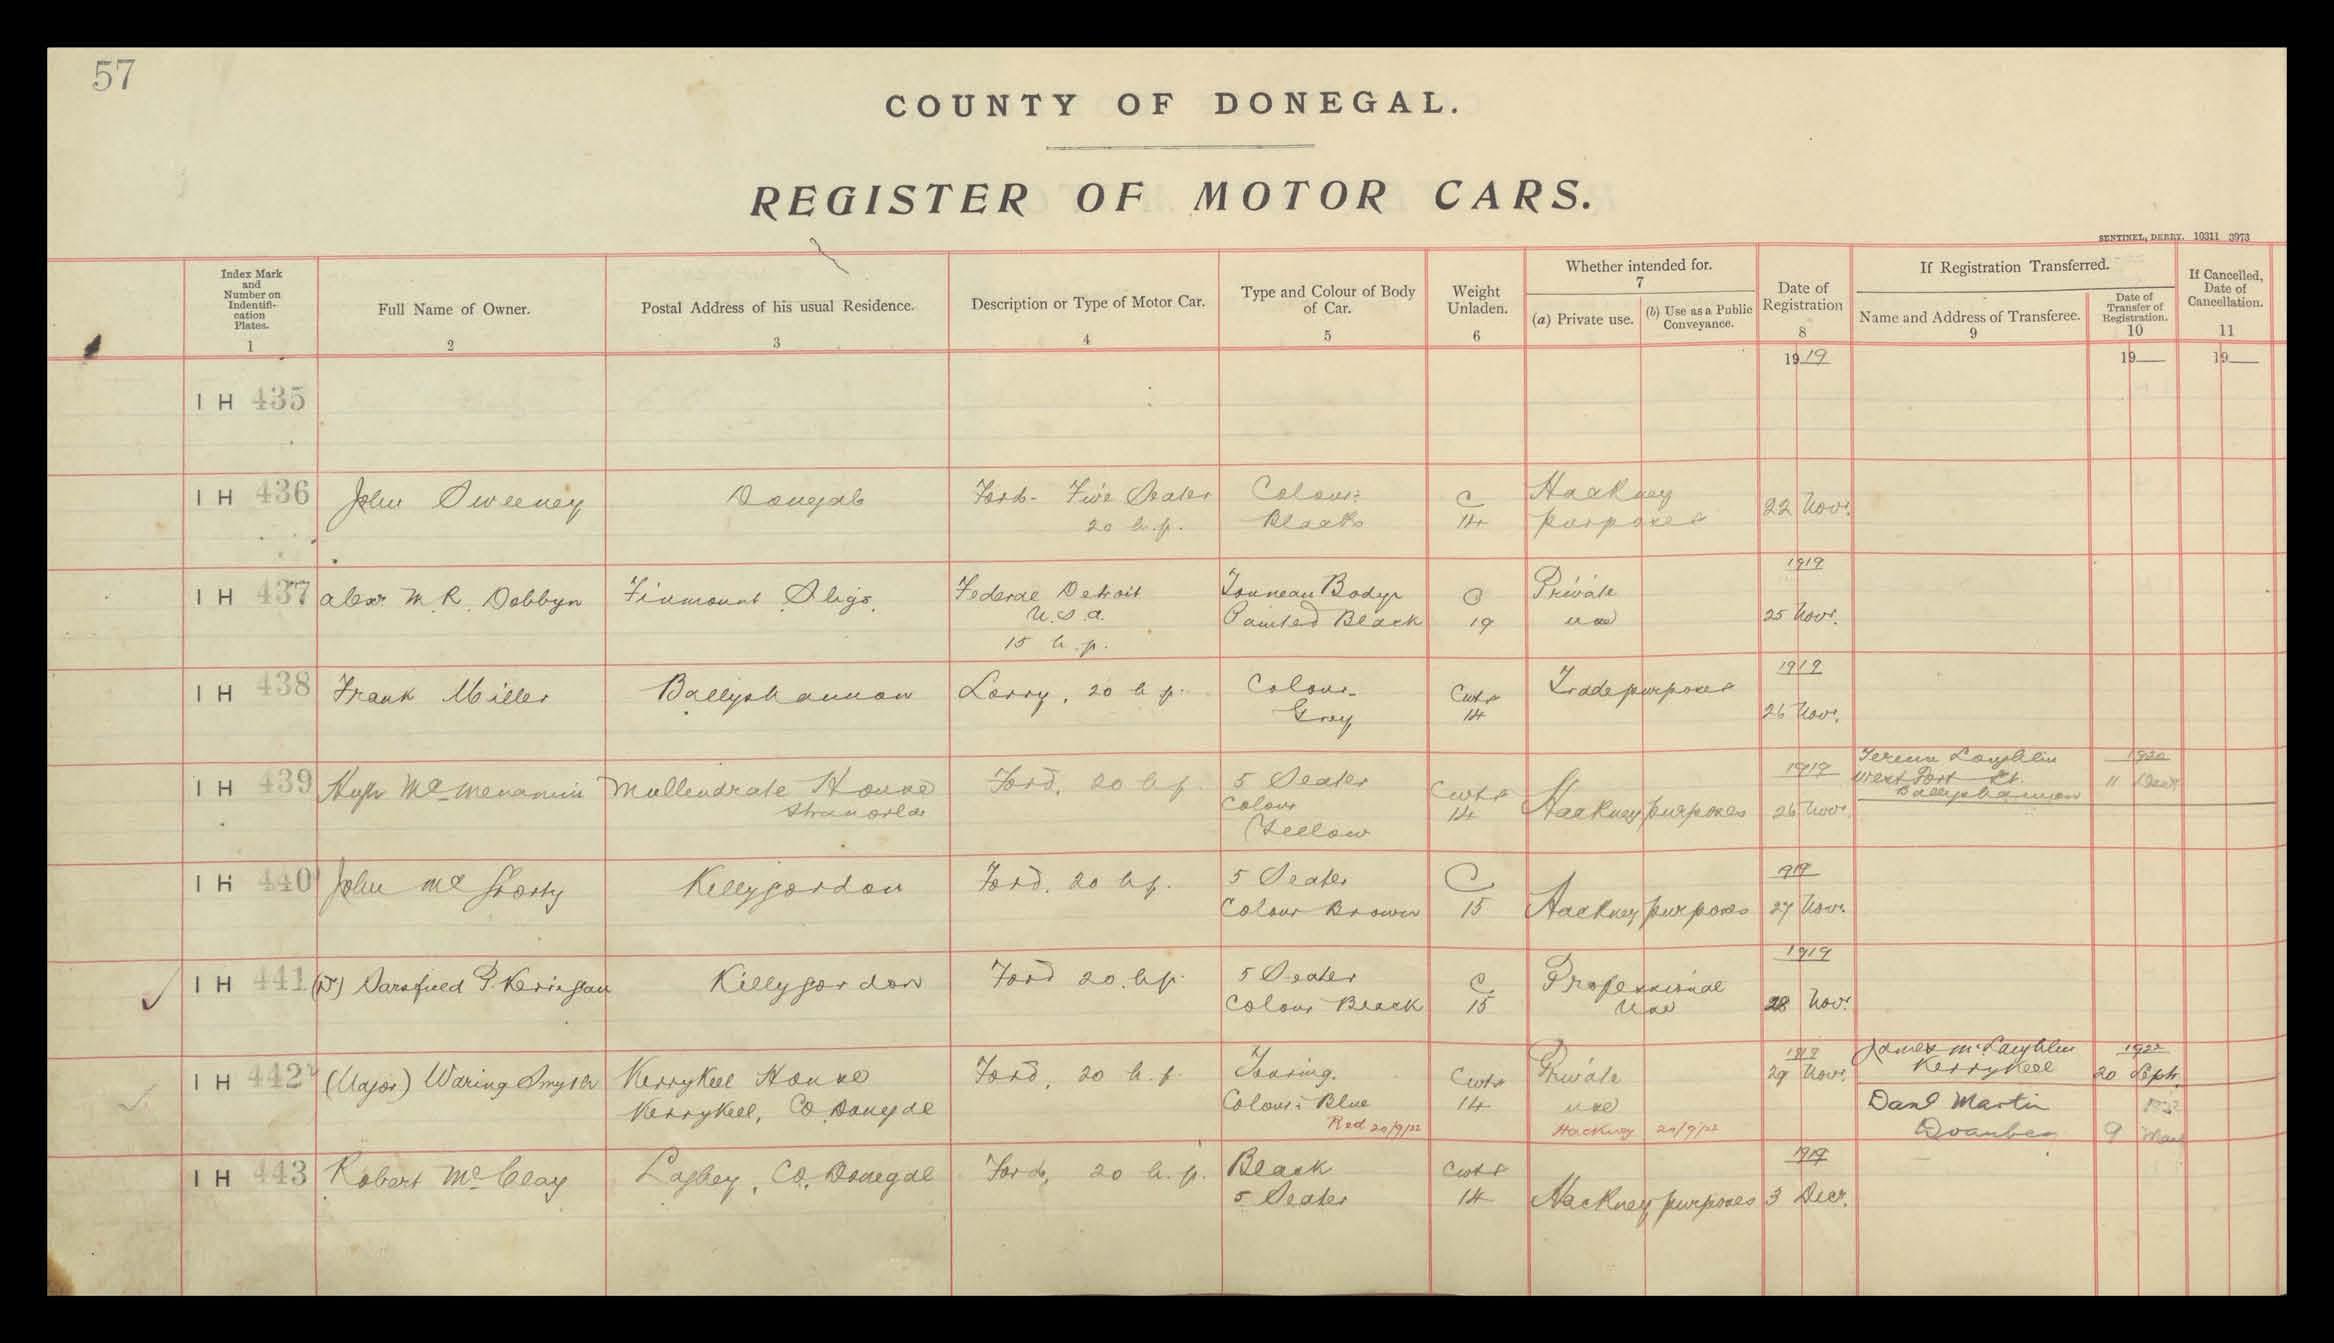 57
COUNTY OF DONEGAL.
REGISTER OF MOTOR CARS.
SENTINEL, DERRY. 10311 3973
Index Mark and Number on Indentifi-cation Plates. 1
Full Name of Owner. 2
Postal Address of his usual Residence. 3
Description or Type of Motor Car. 4
Type and Colour of Body of Car. 5
Weight Unladen. 6
Whether intended for. 7
(a) Private use.
(b) Use as a Public Conveyance.
Date of Registration 8
If Registration Transferred.
Name and Address of Transferee. 9
Date of Transfer of Registration. 10
If Cancelled, Date of Cancellation. 11
1919 19 19
I H 435
I H 436 John Sweeney Donegal Ford- Five Seater Colour: C Hackney 22 Novr.
20 h.p. Black 14 purposes
1919
I H 437 Alexr. M. R. Dobbyn Finmount Sligo. Federal Detroit Tonneau Body C Private
U.S.A. Painted Black 19 use 25 Novr.
15 h.p.
1919
I H 438 Frank Miller Ballyshannon Lorry, 20 h.p. Colour- Cwts Trade purposes
Grey 14 26 Novr.
I H 439 Hugh McMenamin Mullendrate House Ford, 20 h.p. 5 Seater Cwts 1919 Laughlin 1920
Stranorlar Colour 14 Hackney purposes 26 Novr. West Port St. 11
Yellow Ballyshannon
1919
I H 440 John Mc Ford, 20 h.p. 5 Seater C
Killygordon Colour Brown 15 Hackney purposes 27 Novr.
1919
I H 441 (Dr) Sarsfield P. Kerrigan Killygordon Ford 20 h.p. 5 Seater C Professional
Colour Black 15 Use 28 Novr.
I H 442 (Major) Waring Smyth Kerrykeel House Ford, 20 h.p. Touring. Cwts Private 1919 29 Novr. James McLaughlin 1922
Kerrykeel, Co Donegal Colour: Blue 14 use Kerrykeel 20 Sept.
Red 20/9/22 Hackney 20/9/22 Danl Martin
9
1919
I H 443 Robert McClay Laghey, Co. Donegal Ford, 20 h.p. Black Cwts
5 Seater 14 Hackney purposes 3 Decr.